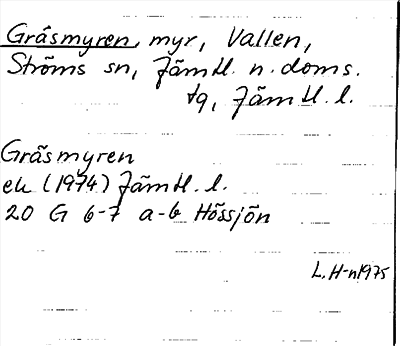 Gråsmyren, myr, Vallen,
Ströms sn, Jämtl. n. doms.
tg, Jämtl. l.
Gråsmyren
ek (1974) Jämtl. l.
20 G 6-7 a-b Hössjön
L. H-n 1975